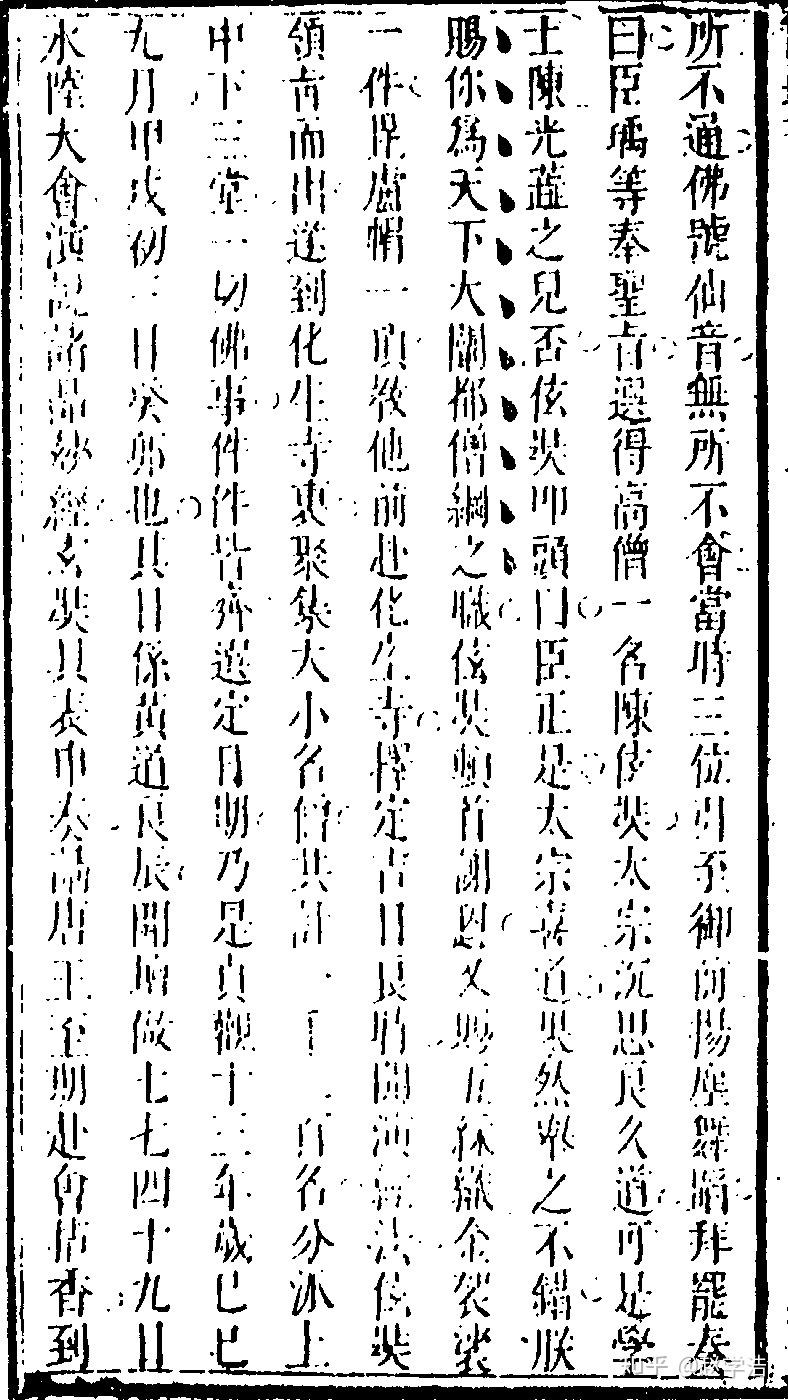 所不通佛號仙音無所不會當時三位引至御前揚塵舞蹈拜罷奏
曰臣瑀等奉聖旨選得高僧一名陳玄奘太宗沉思良久道可是學
士陳光蕋之兒否玄奘叩頭曰臣正是太宗喜道果然舉之不錯朕
賜你為天下大闡都僧綱之職玄奘頓首謝恩又賜五綵織金袈裟
一件毘盧帽一頂教他前赴化生寺擇定吉日良時開演經法玄奘
領旨而出遂到化生寺裏聚集大小名僧共計一千二百名分派上
中下三堂一切佛事件件皆齊選定日期乃是貞觀十三年歲己巳
九月甲戌初三日癸卯也其日係黃道良辰開壇做七七四十九日
水陸大會演說諸品妙經玄奘具表申奏請唐王至期赴會拈香到
知乎